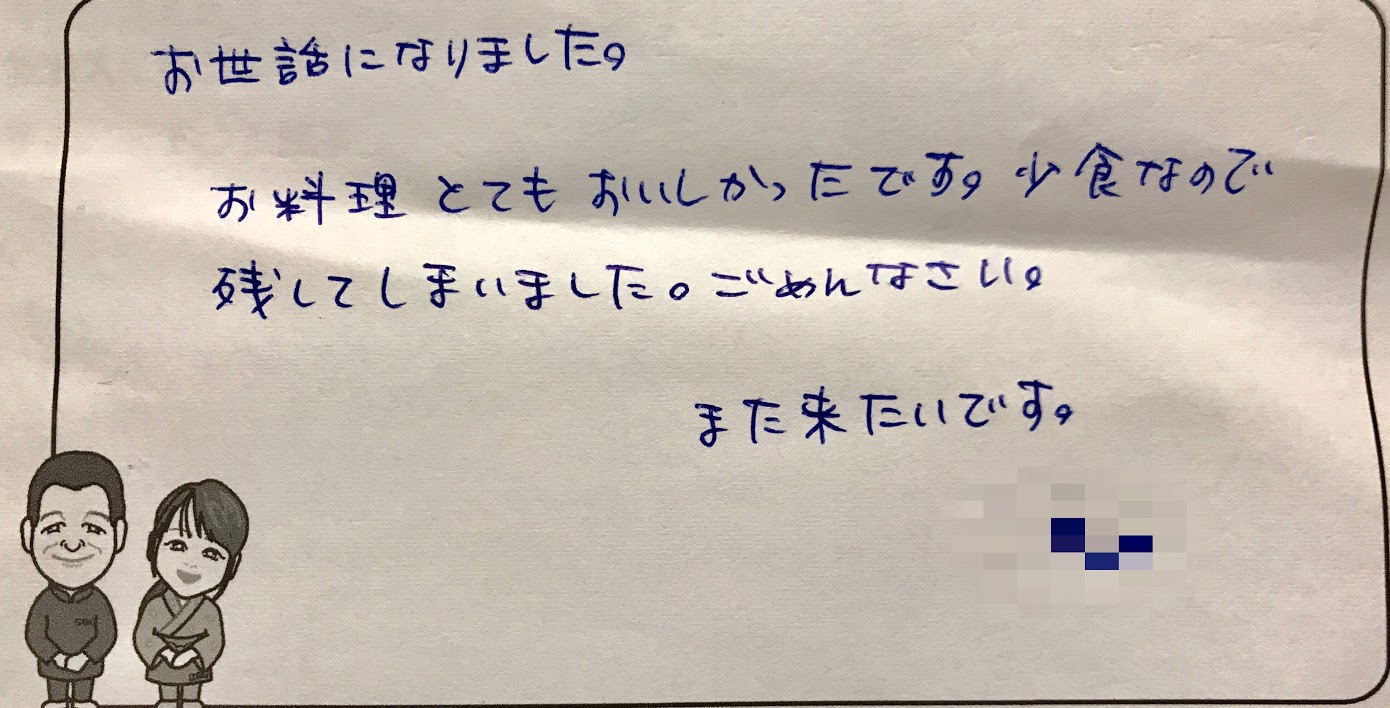 お世話になりました。
お料理とてもおいしかったです。少食なので
残してしまいました。ごめんなさい。
また来たいです。